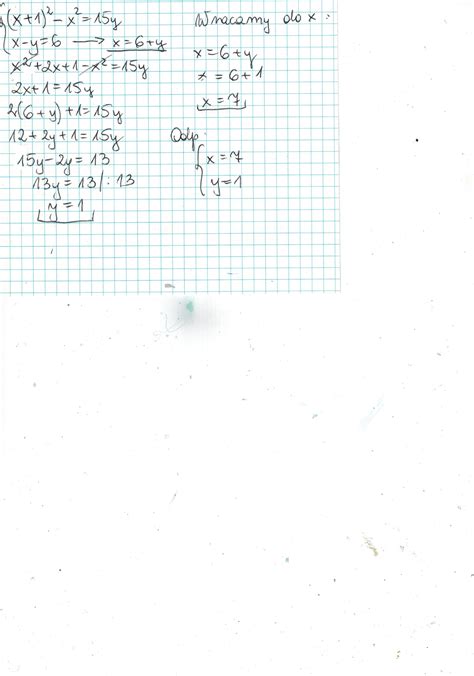 (x+1)² - x² = 15y
x-y=6 → x=6+y
x²+2x+1-x²=15y
2x+1=15y
2(6+y)+1=15y
12+2y+1=15y
15y-2y=13
13y=13/:13
y=1
Wracamy do x:
x=6+y
x=6+1
x=7
Odp.
x=7
y=1